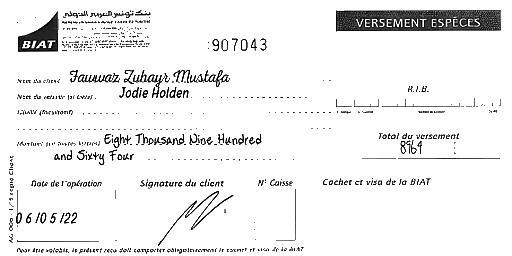 بنك تونس العربي الدولي
BIAT
VERSEMENT ESPÈCES
907043
Nom du client Fawwaz Zuhayr Mustafa
Nom du verseur (si tiers) Jodie Holden
R.I.B.
Libellé (facultatif)
Montant (en toutes lettres) Eight Thousand Nine Hundred
and Sixty Four
Total du versement
8964
Date de l'opération
Signature du client
N° Caisse
Cachet et visa de la BIAT
06/05/22
Pour être valable, le présent reçu doit comporter obligatoirement le cachet et visa de la BIAT